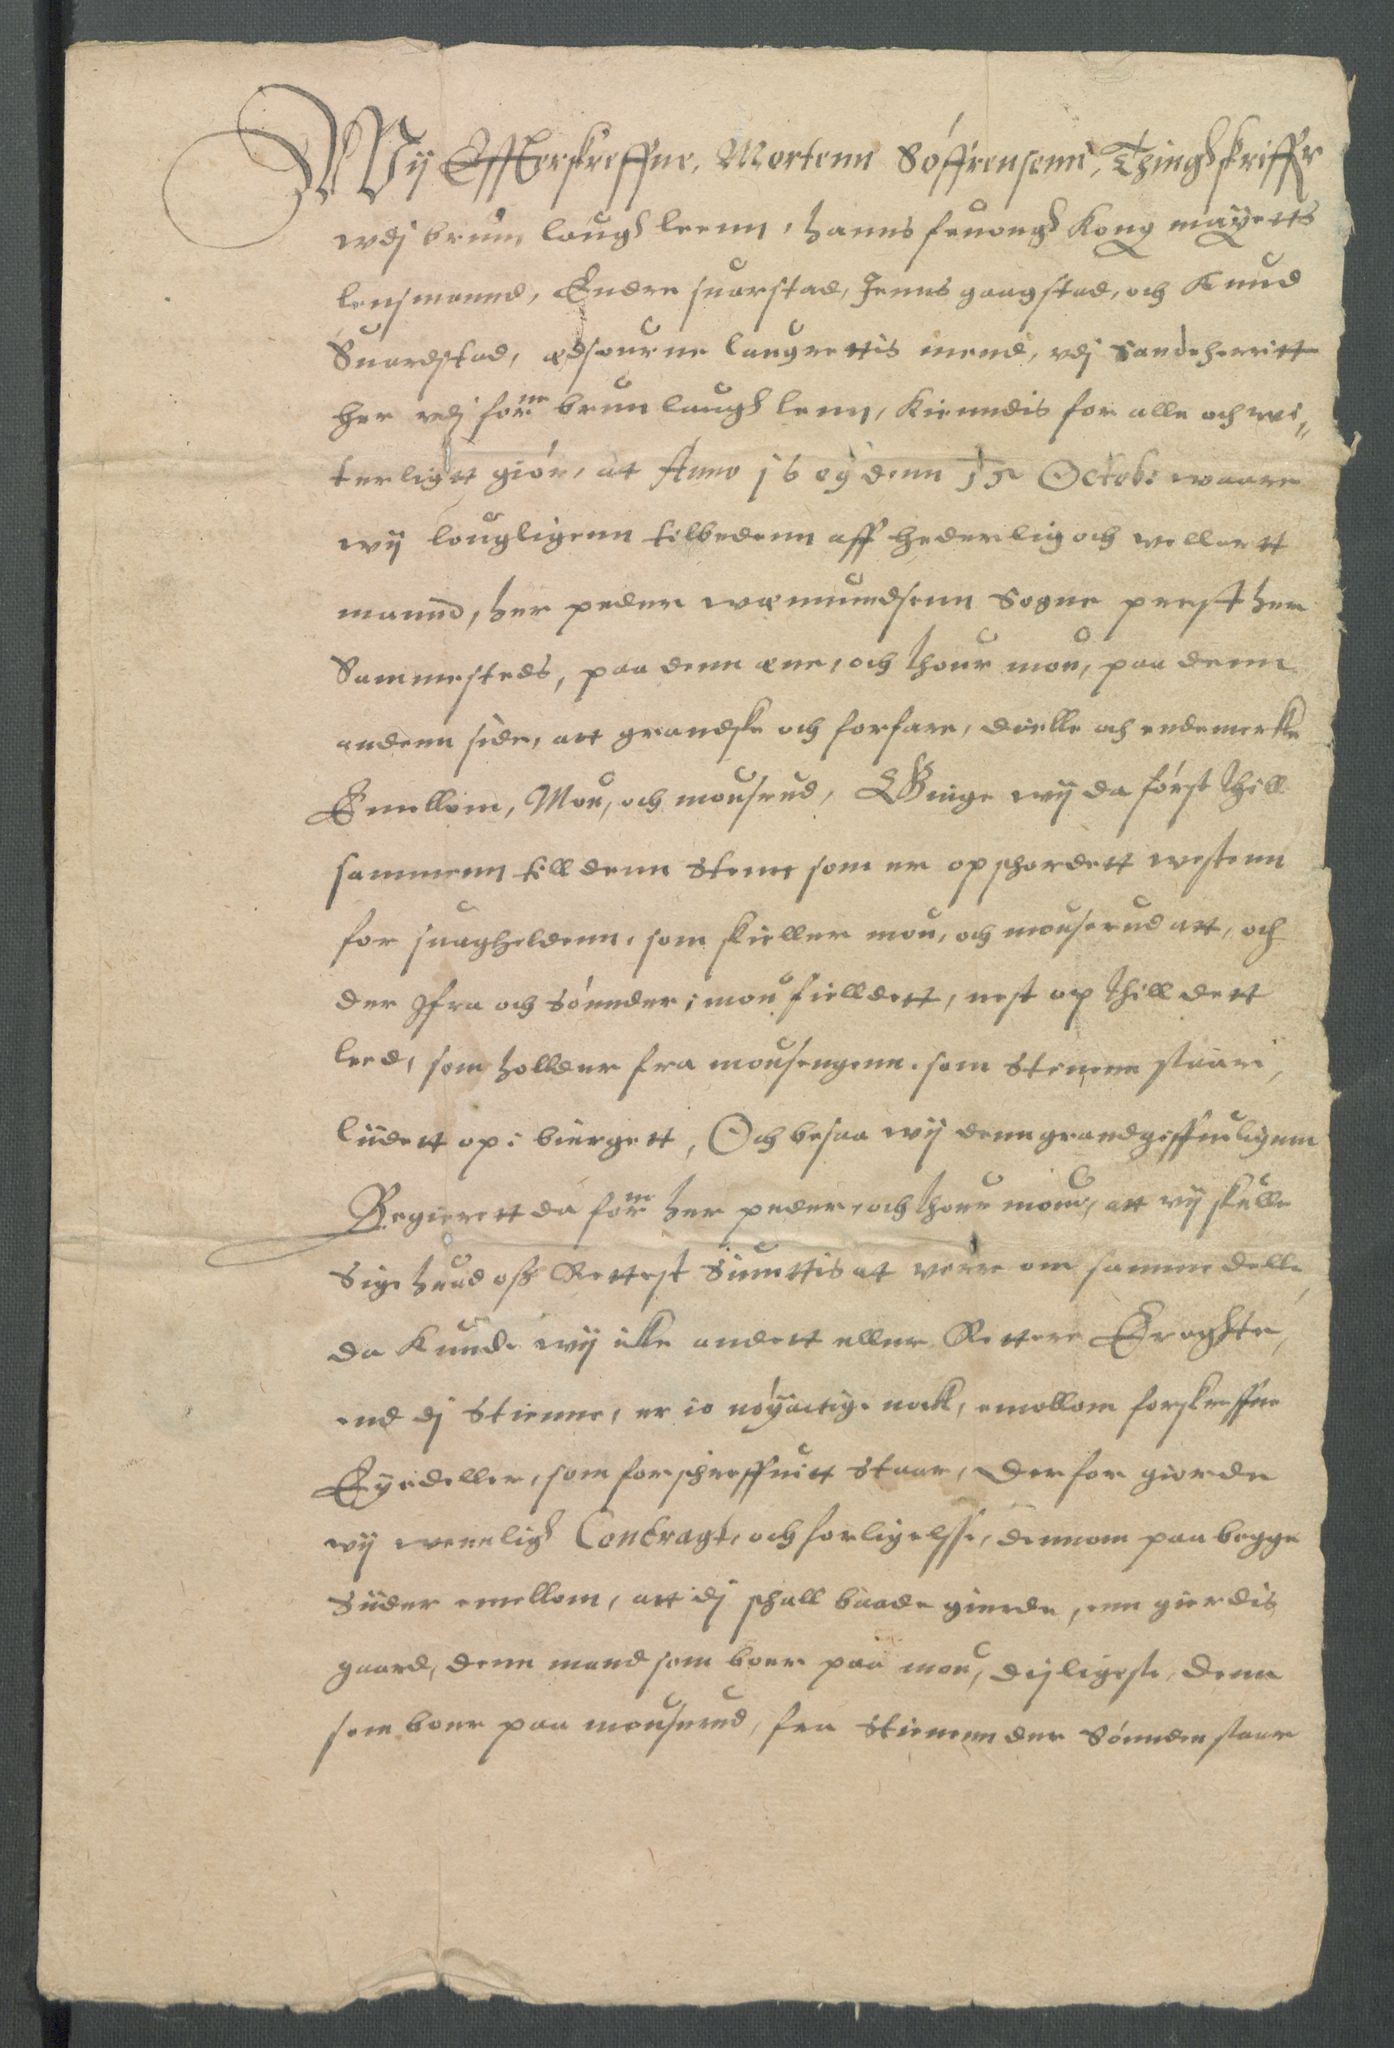 Wij Effterskreffne, Mortenn Søffrensenn, Thinghskriffr
wdj brun lough leenn, hanns feuongh Kong mayetts
lensmannd, Endre suarstad, Jenns gaagstad, och Knud
Suardstad, edsourne laugrettis mend, vdj Sandeherritt
her vdj forne brunlaugh lenn, Kienndis for alle och wi„
terligtt giøre, att Anno 1609 denn 15 Octob: waare
wij lougligenn tilbedenn aff hederlig och wellertt
mannd, her peder wemundsenn Sogne prest her
Sammesteds, paa denn ene, och thour mou, paa denn
andenn side, att grandske och forfare, dielle och endemerkke
Emellom, Mou, och mouserud, Ginge wij da først thill
sammenn till denn Stenn som er opschordett westenn
for suagheldenn, som skieller mou, och mouserud att, och
der Ifra och Sønnder i mou fielldett, nest op thill dett
leed, som holder fra mousengenn som Stenene staar i,
liidett op i biergett, Och besaa wij denn grandgiffuligenn
Begierett da forne her peder, och thour moue, att vij skulle
Sige huad oss Rettest Siunttis at verre om samme delle,
da Kunde wij icke andett eller Rettere Eraghte,
end dj Stienne, er io nøyactige nock, emellom forskreffne
Eyedeller, som forschreffuitt Staar, Derfor giorde
wij wenligh Contragt, och forligelsse, dennom paa begge
Siider emellom, att dj schall baade gierde, enn gierdis
gaard, denn mand som boer paa mou, disligeste, denn
som boer paa mouserud, fra Stienenn der Sønnden staar